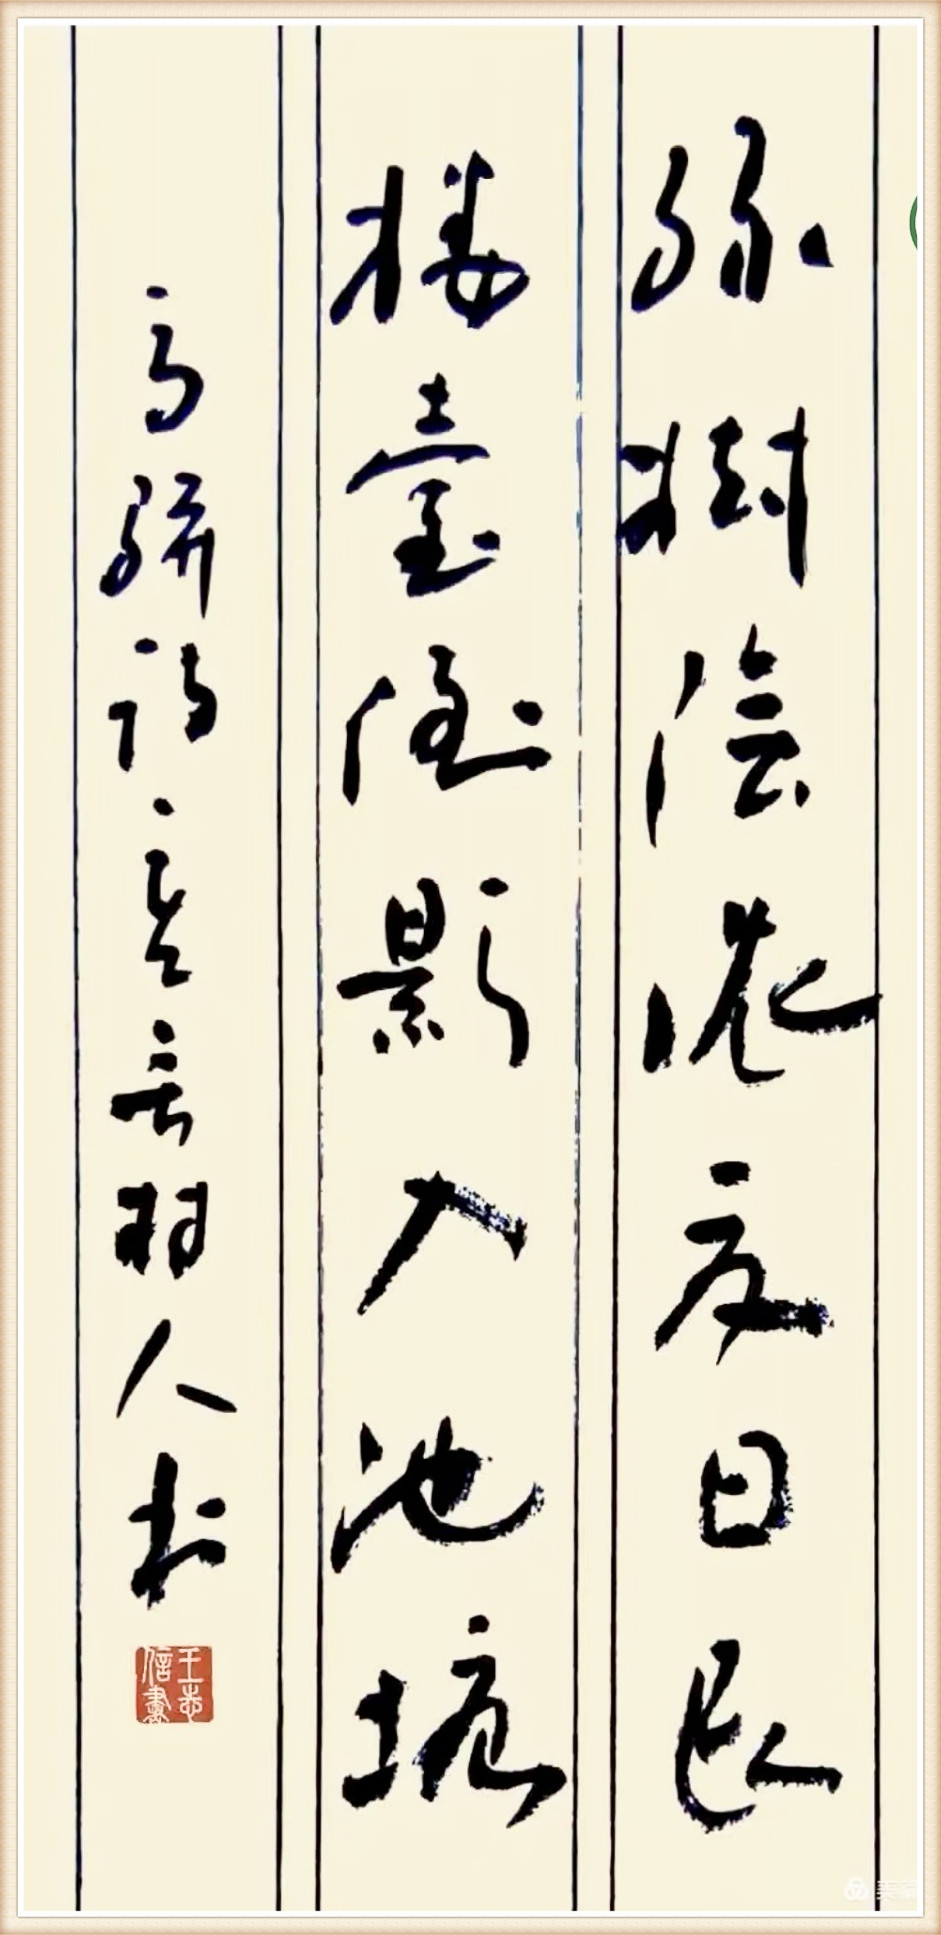 綠樹陰濃夏日長
樓臺倒影入池塘
高駢詩 人书
王志
信書
美篇